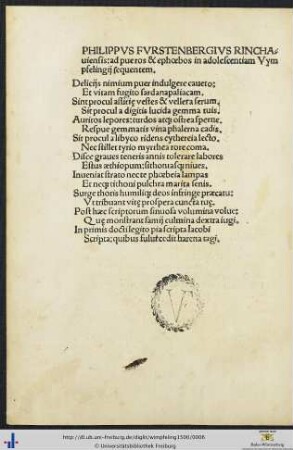 PHILIPPVS FVRSTENBERGIVS RINCHA-
uiensis: ad pueros & ephœbos in adolescentiam Vym
pfelingij sequentem.
Delicijs nimium puer indulgere caueto:
Et vitam fugito sardanapaliacam.
Sint procul assirię vestes & vellera serum,
Sit procul a digitis lucida gemma tuis.
Auritos lepores: turdos atq ostrea sperne.
Respue gemmatis vina phalerna cadis.
Sit procul a libyco ridens cythereia lecto,
Nec stillet tyrio myrrhea rore coma.
Disce graues teneris annis tolerare labores
Estus æthiopum: sithoniasq niues.
Inueniat strato nec te phœbeia lampas
Et neq tithoni pulchra marita senis.
Surge thoris humiliq deos infringe præcatu:
Vt tribuant vitę prospera cuncta tuę.
Post hæc scriptorum sinuosa volumina volue:
Quę monstrant samij culmina dextra iugi.
In primis docti legito pia scripta Iacobi
Scripta: quibus
V
http://dl.ub.uni-freiburg.de/diglit/wimpfeling1500/0006
© Universitätsbibliothek Freiburg